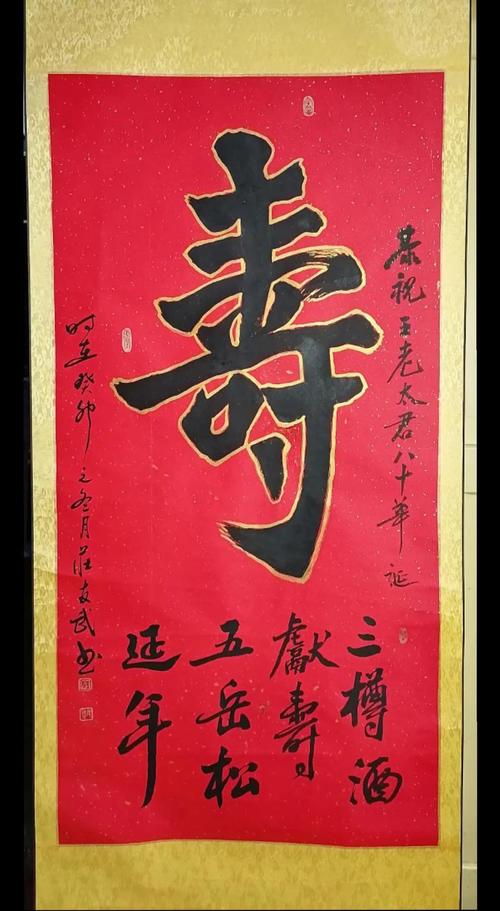 恭祝王老太君八十華誕
壽
三樽酒
獻壽
五岳松
延年
时在癸卯之冬月莊友武书